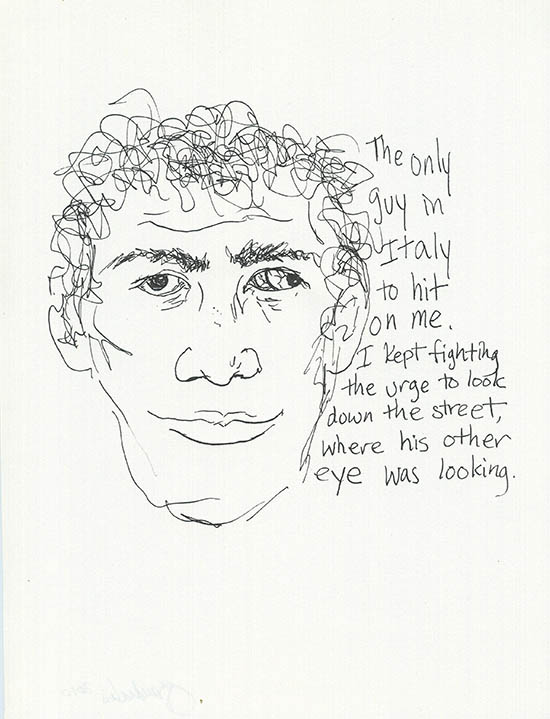 The only
guy in
Italy
to hit
on me.
I kept fighting
the urge to look
down the street,
where his other
eye was looking.